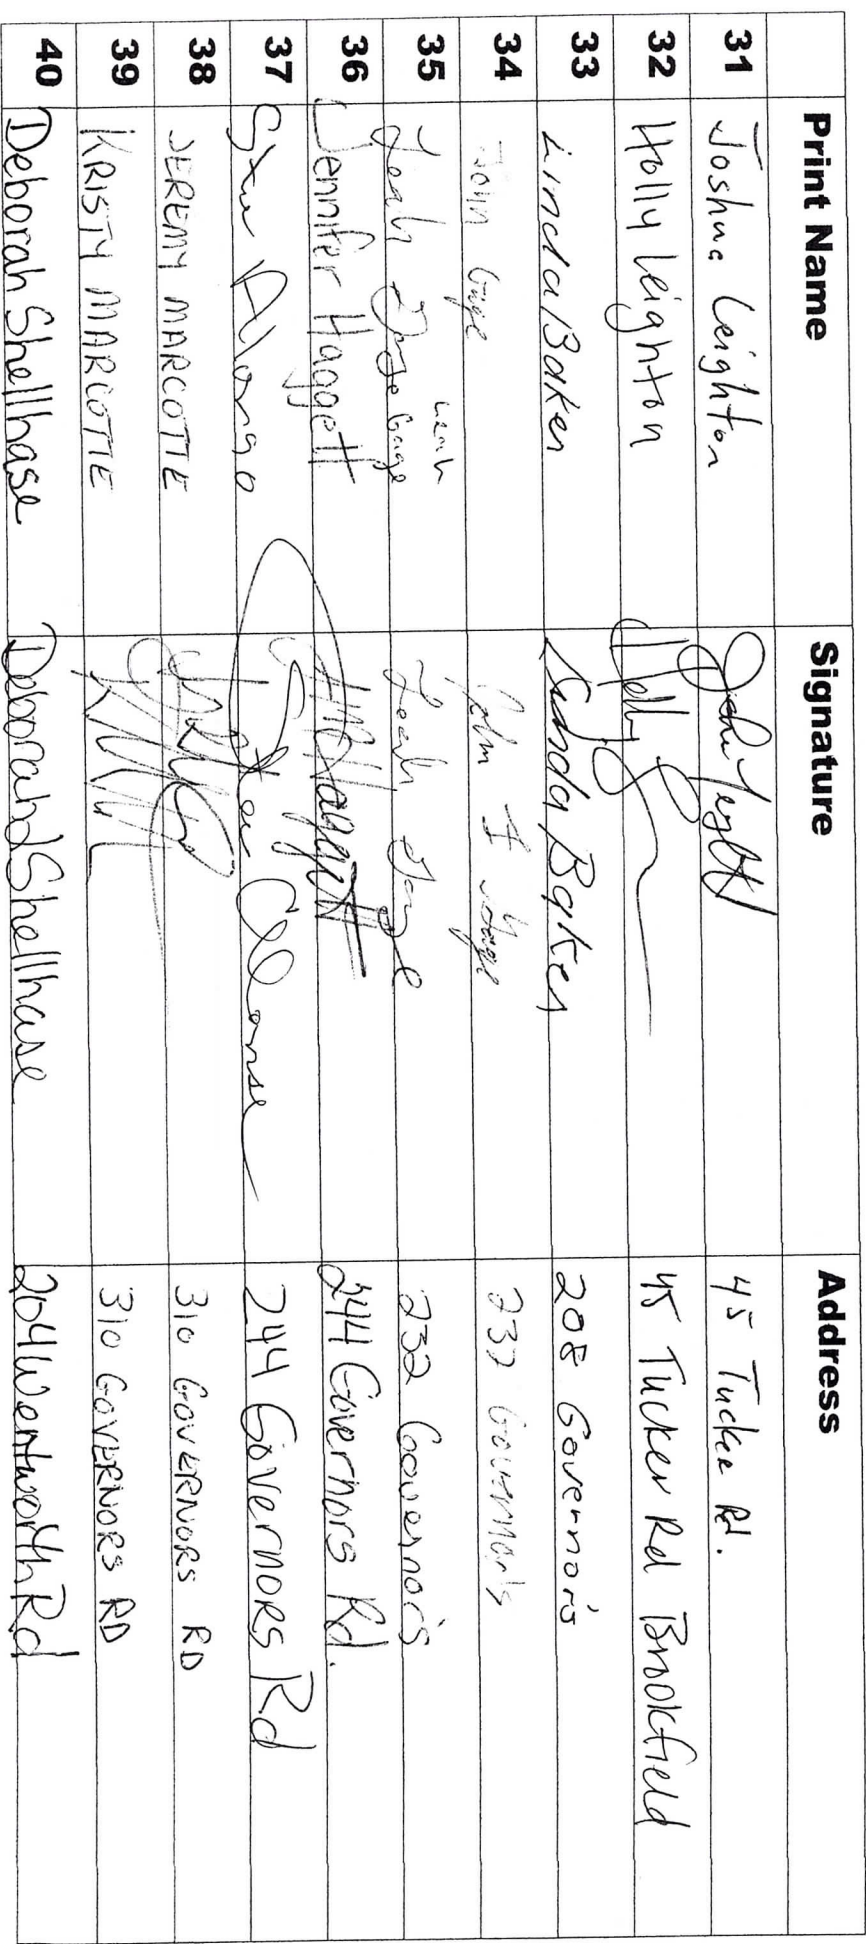 Print Name Signature Address
31 Joshua Leighton 45 Tucker Rd.
32 Holly Leighton Holly 45 Tucker Rd Brookfield
33 Linda Baker Linda Baker 208 Governor's
34 John Gage John I Gage 232 Governor's
Leah
35 Leah Gage Gage Leah Gage 232 Governor's
36 Jennifer Haggett Haggett 244 Governors Rd.
37 Alonso 244 Governors Rd
38 JEREMY MARCOTTE 310 GOVERNORS RD
39 KRISTY MARCOTTE 310 GOVERNORS RD
40 Deborah Shellhase Deborah Shellhase 264 Wentworth Rd